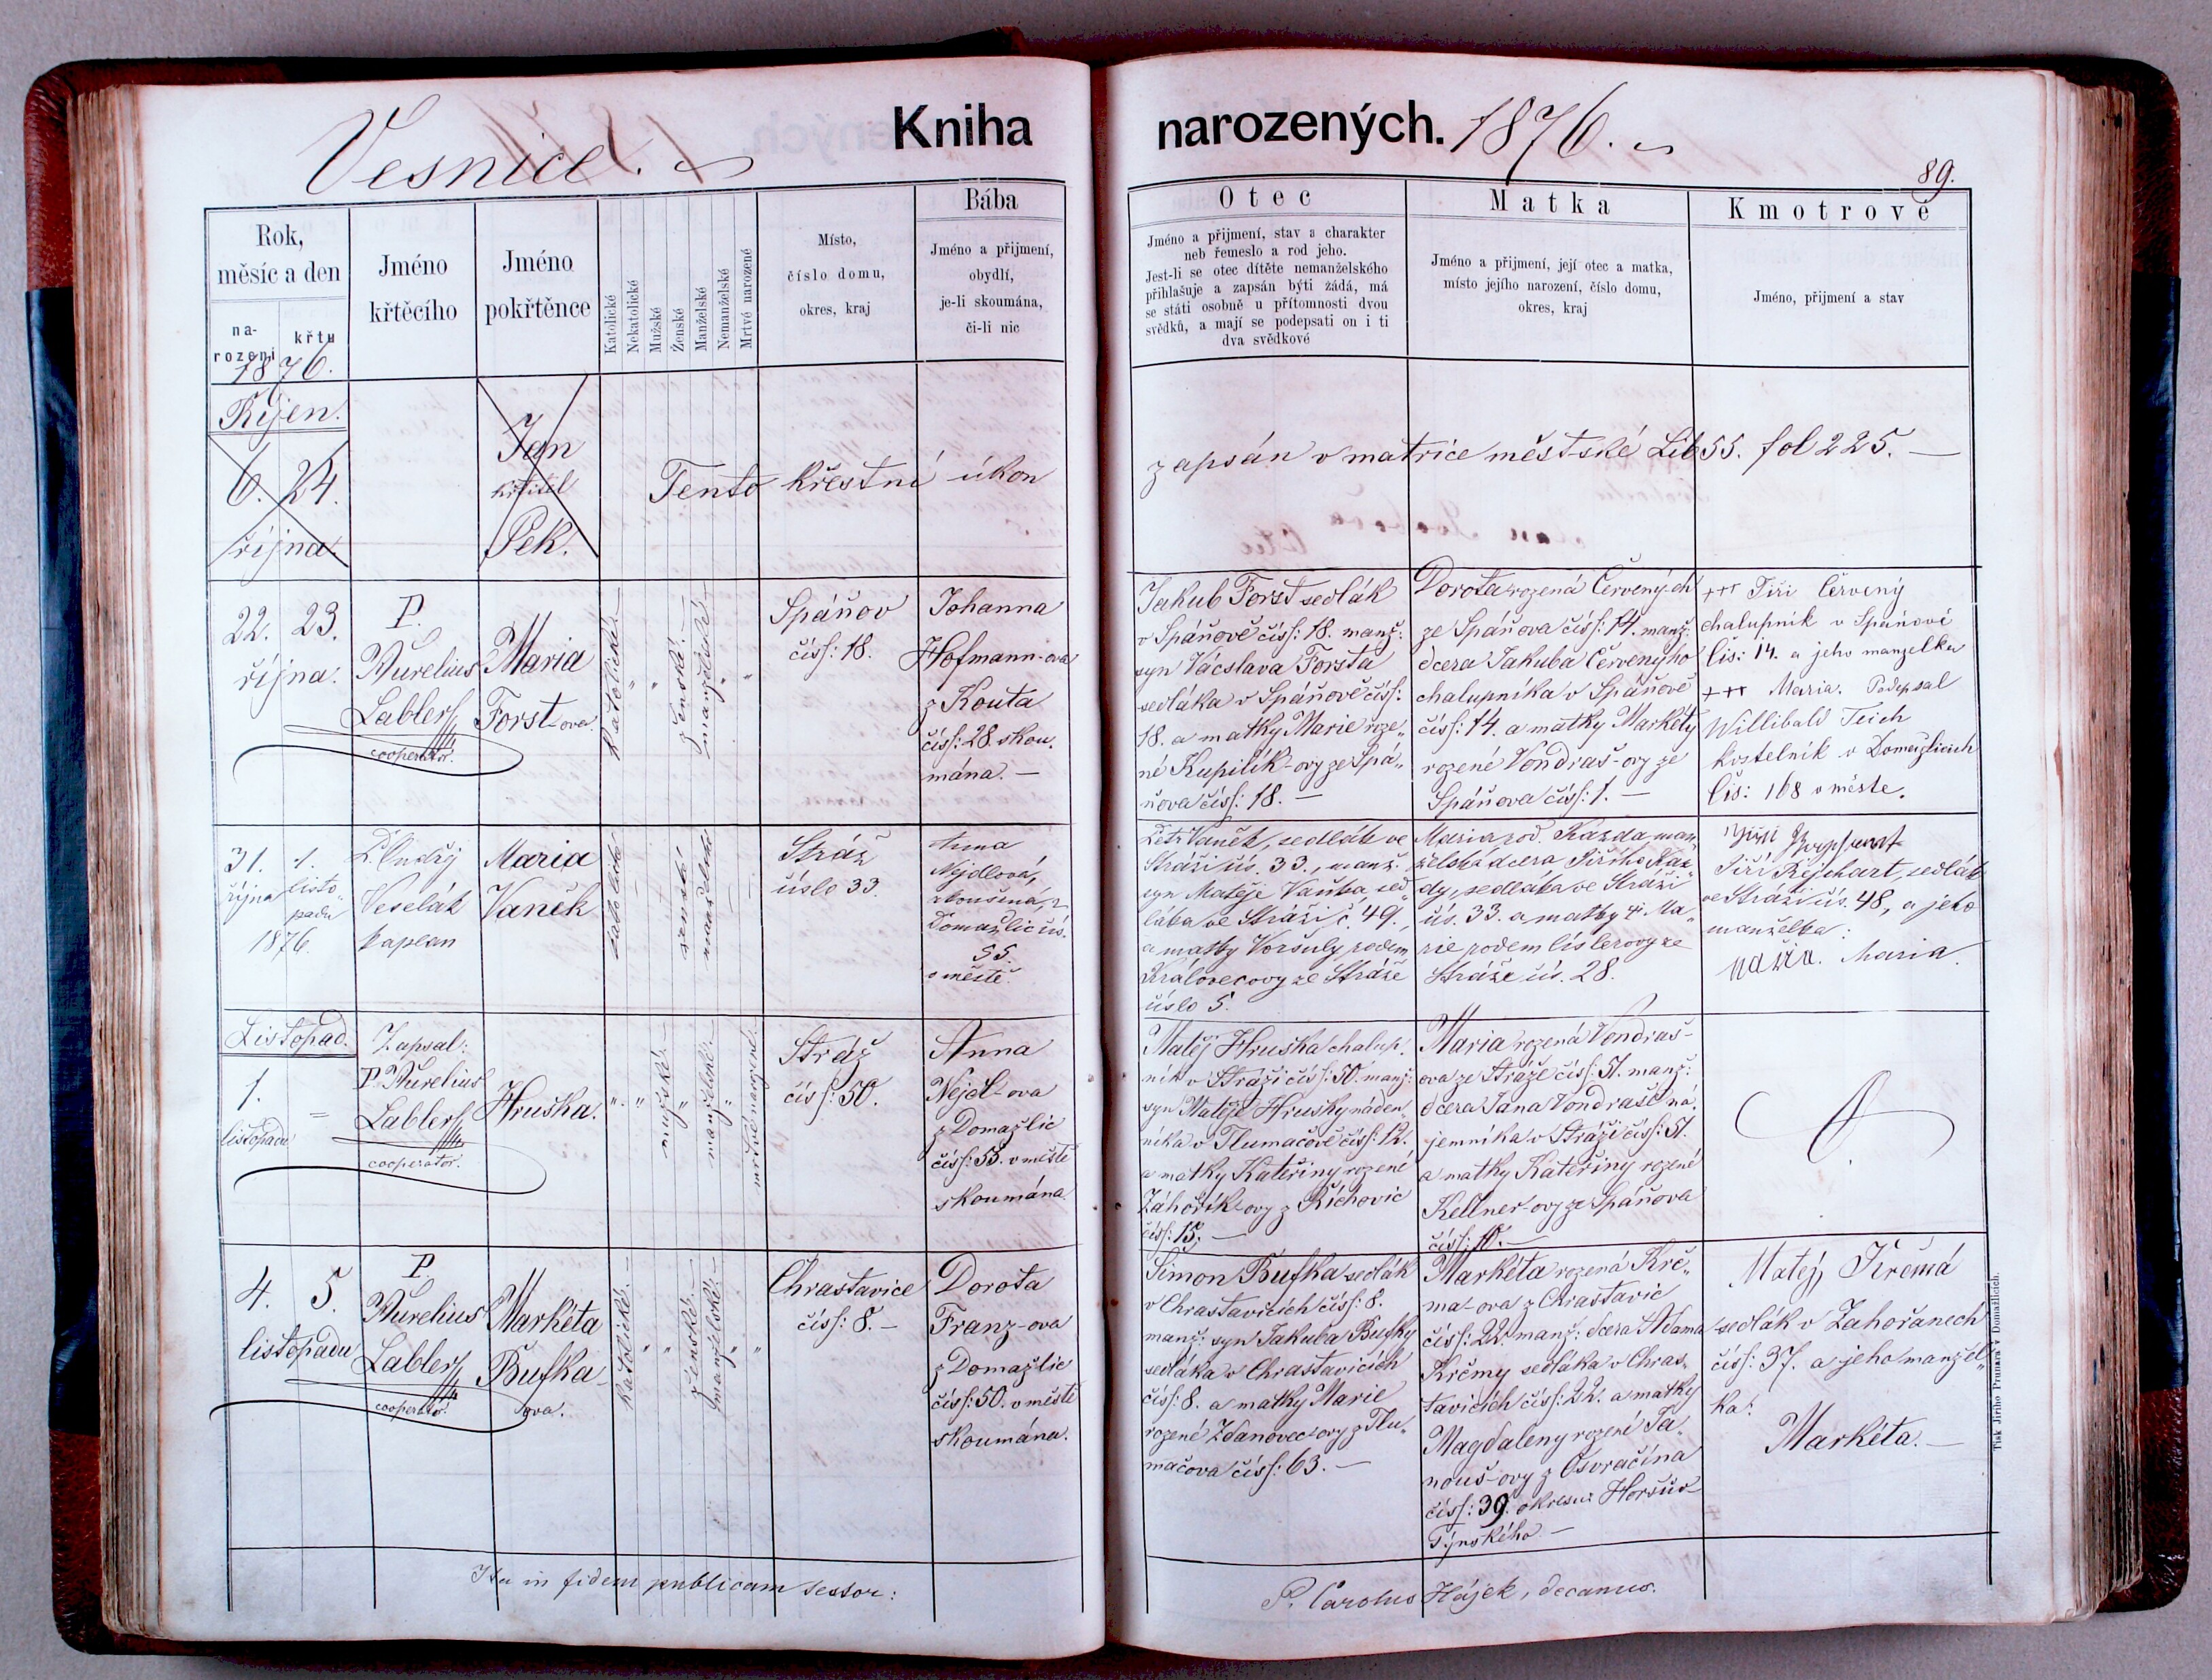 Vesnice.
Kniha
narozených. 1876.
89.
Rok,
měsíc a den
na-
rozeni
křtu
1876.
Jméno
křtěcího
Jméno
pokřtěnce
Katolické
Nekatolické
Mužské
Ženské
Manželské
Nemanželské
Mrtvě narozené
Místo,
číslo domu,
okres, kraj
Bába
Jméno a přijmení,
obydlí,
je-li skoumána,
či-li nic
Otec
Jméno a přijmení, stav a charakter
neb řemeslo a rod jeho.
Jest-li se otec dítěte nemanželského
přihlašuje a zapsán býti žádá, má
se státi osobně u přítomnosti dvou
svědků, a mají se podepsati on i ti
dva svědkové
Matka
Jméno a přijmení, její otec a matka,
místo jejího narození, číslo domu,
okres, kraj
Kmotrové
Jméno, přijmení a stav
Říjen.
6. 24.
října.
Jan
křtitel
Pek.
Tento křestní úkon
zapsán v matrice městské Lib 55. fol 225. —
22. 23.
října.
P.
Aurelius
Labler
cooperator.
Maria
Forst-ova.
katolické —
ženské. —
manželské —
Spáňov
čísl: 18.
Johanna
Hofmann-ova
z Kouta
čísl: 28. skou-
mána. —
Jakub Forst sedlák
v Spáňově čísl: 18. manž:
syn Vácslava Forsta
sedláka v Spáňově čísl:
18. a matky Marie roze„
né Kupilík-ovy ze Spá„
ňova čísl: 18. —
Dorota rozená Červených
ze Spáňova čísl: 14. manž:
dcera Jakuba Červenýho
chalupníka v Spáňově
čísl: 14. a matky Markéty
rozené Vondraš-ovy ze
Spáňova čísl: 1. —
+++ Jiří Červený
chalupník v Spáňově
čis: 14. a jeho manzelka
+++ Maria. Podepsal
Willibald Teich
kostelník v Domažlicích
čis: 168 v městě.
31. 1.
října listo„
padu
1876.
P. Ondřj
Veselák
kaplan
Maria
Vaněk
katolické
ženské
manželské
Stráž
číslo 33.
Anna
Nejdlová,
zkoušená, z
Domažlic čís.
55.
v městě.
Petr Vaněk, sedlák ve
Stráži čís. 33., manž.
syn Matěje Vaňka, sed„
láka ve Stráži č. 49.,
a matky Voršuly rodem
Královecovy ze Stráže
číslo 5.
Maria rod. Kazda man„
želská dcera Jiřího Kaz„
dy, sedláka ve Stráži
čís. 33. a matky Ma„
rie rodem Císlerovy ze
Stráže čís. 28.
Jiří Rejchart, sedlák
ve Stráži čís. 48, a jeho
manželka:
Maria. Maria.
Listopad.
1.
listopadu
Zapsal:
P. Aurelius
Labler
cooperator.
Hruška.
mužské. —
manželské. —
mrtvě narozené.
Stráž
čísl: 50.
Anna
Nejdl-ova
z Domažlic
čísl: 55. v městě
skoumána.
Matěj Hruška chalup„
ník v Stráži čísl: 50. manž:
syn Matěje Hrušky náden„
níka v Tlumačově čísl: 12.
a matky Kateřiny rozené
Záhořík-ovy z Říchovic
čísl: 15. —
Maria rozená Vondraš-
ova ze Stráže čísl: 51. manž:
dcera Jana Vondraše ná„
jemníka v Stráži čísl: 51.
a matky Kateřiny rozené
Kellner-ovy ze Spáňova
čísl: 10. —
4. 5.
listopadu
P.
Aurelius
Labler
cooperator.
Markéta
Bufka-
ova.
katolické. —
ženské. —
manželské. —
Chrastavice
čísl: 8. —
Dorota
Franz-ova
z Domažlic
čísl: 50. v městě
skoumána.
Šimon Bufka sedlák
v Chrastavicích čísl: 8.
manž: syn Jakuba Bufky
sedláka v Chrastavicích
čísl: 8. a matky Marie
rozené Zdanovec-ovy z Tlu„
mačova čísl: 63. —
Markéta rozená Krč„
ma-ova z Chrastavic
čísl: 22. manž: dcera Adama
Krčmy sedláka v Chras„
tavicích čísl: 22. a matky
Magdaleny rozené Ja„
nouš-ovy z Osvračína
čísl: 39. okresu Horšův-
Týnského. —
Matěj Krčmá
sedlák v Zahořanech
čísl: 37. a jeho manžel„
ka:
Markéta. —
Ita in fidem publicam testor:
P. Carolus Hájek, decanus.
Tisk Jiřího Prunara v Domažlicích.